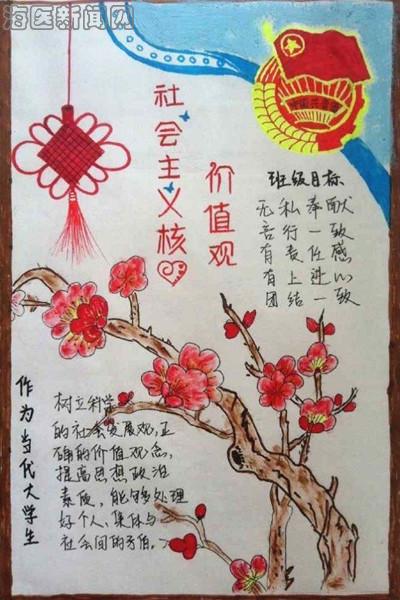 海医新闻网
社会主义核心
价值观
班级目标
无私奉献
言行一致
有责任感
有上进心
团结一致
作为当代大学生
树立科学
的社会发展观，正
确的价值观念，
提高思想政治
素质，能够处理
好个人、集体与
社会间的